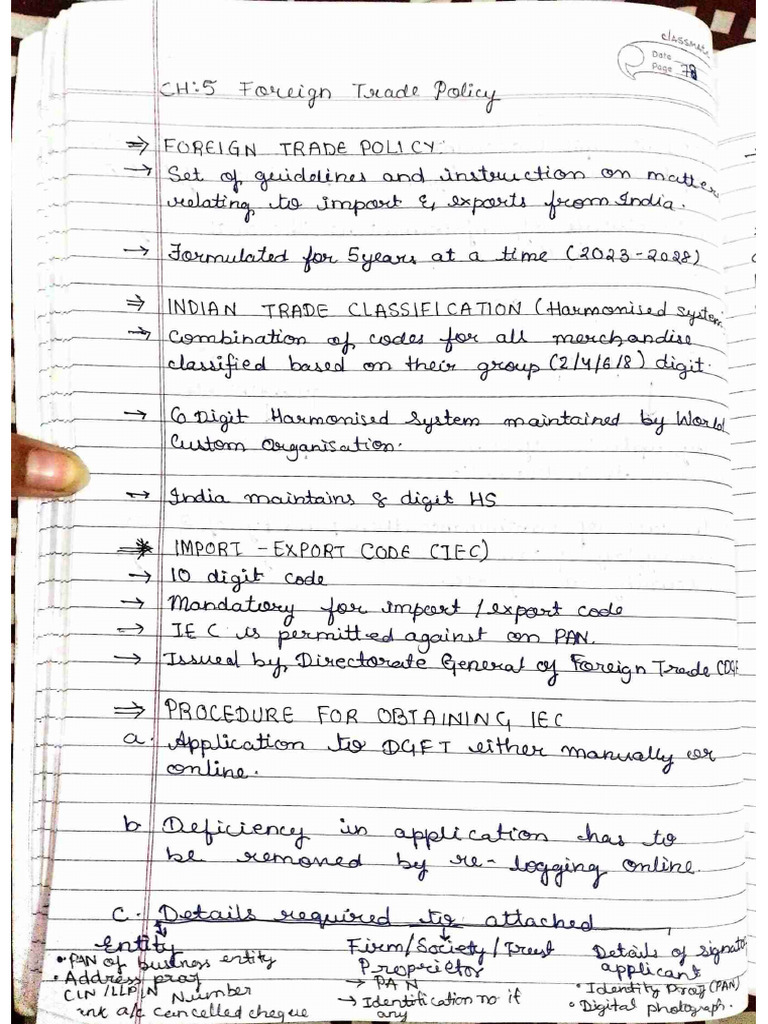 classmate
Date
Page 78
CH:5 Foreign Trade Policy
⇒ FOREIGN TRADE POLICY:
→ Set of guidelines and instruction on matter
relating to import & exports from India.
→ Formulated for 5 years at a time (2023-2028)
⇒ INDIAN TRADE CLASSIFICATION (Harmonised System
→ Combination of codes for all merchandise
classified based on their group (2/4/6/8) digit.
→ 6 Digit Harmonised System maintained by World
Custom Organisation.
→ India maintains 8 digit HS
⇒ IMPORT - EXPORT CODE (IEC)
→ 10 digit code
→ Mandatory for import/export code
→ IEC is permitted against on PAN.
→ Issued by Directorate General of Foreign Trade (DGF
⇒ PROCEDURE FOR OBTAINING IEC
a. Application to DGFT either manually or
online.
b Deficiency in application has to
be removed by re-logging online.
c. Details required to attached
Entity Firm/Society/Trust Details of signato
• PAN of business entity Proprietor applicant
• Address proof → PAN • Identity Proof (PAN)
CIN/LLPIN Number → Identification no if • Digital photograph.
ank a/c cancelled cheque any